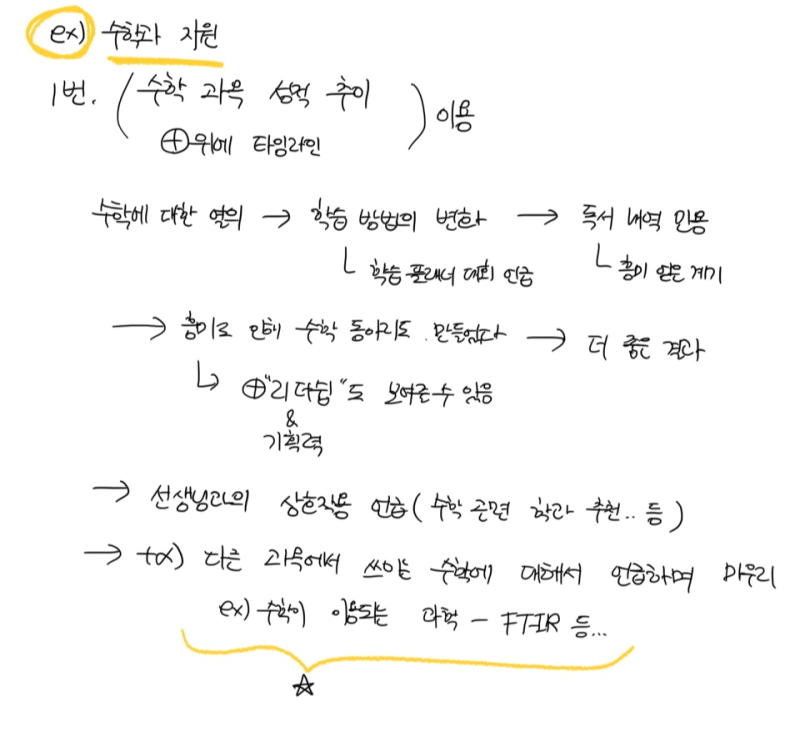 ex) 수학과 지원
1번. (수학 과목 성적 추이
⊕위에 타임라인) 이용
수학에 대한 열의 → 학습 방법의 변화 → 독서 내역 인용
└ 학습 플래너 대회 언급 └ 흥미 얻은 계기
→ 흥미로 인해 수학 동아리도 만들었다 → 더 좋은 결과
↳ ⊕"리더쉽"도 보여줄 수 있음
&
기획력
→ 선생님과의 상호작용 언급 (수학 관련 학과 추천.. 등)
→ +α) 다른 과목에서 쓰이는 수학에 대해서 언급하며 마무리
ex) 수학이 이용되는 과학 - FT-IR 등...
☆